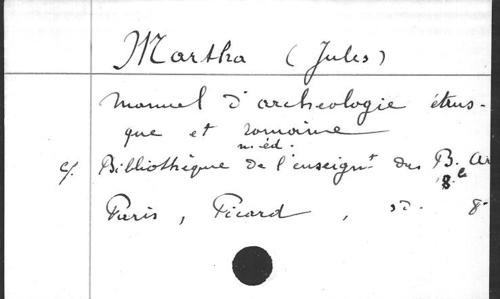 Martha (Jules)
Manuel d'archeologie étrus-
que et romaine
n. éd.
c/. Bibliothèque de l'enseignt des B. A
Paris, Picard, sd. 8°